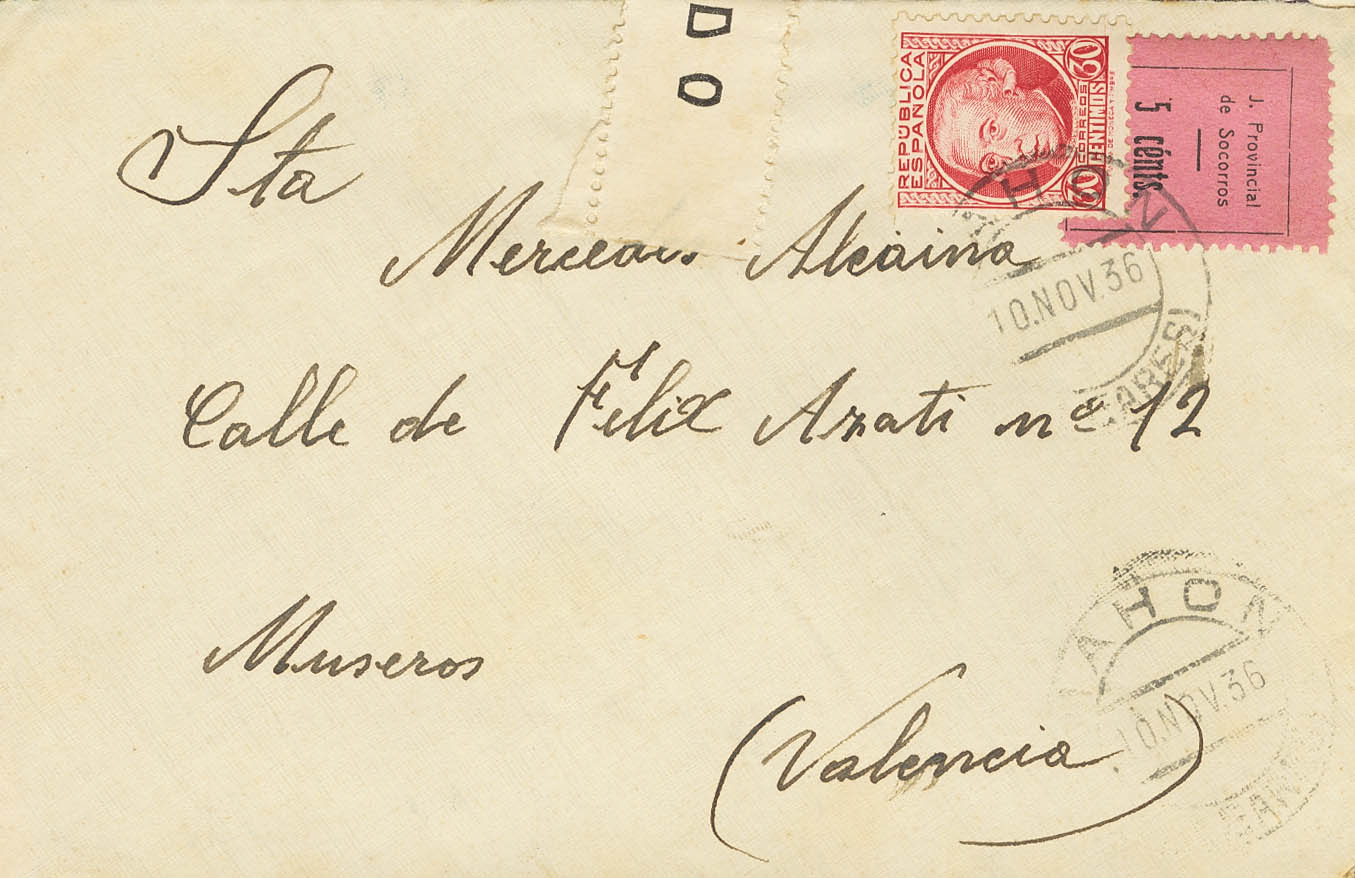 DO
REPÚBLICA
ESPAÑOLA
30 CENTIMOS 30
CORREOS
J. Provincial
de Socorros
5 cénts.
Sta
Mercedes Alcaina
Calle de Felix Azati nº 12
Museros
(Valencia)
HON
10.NOV.36
BARES)
AHON
10.NOV.36